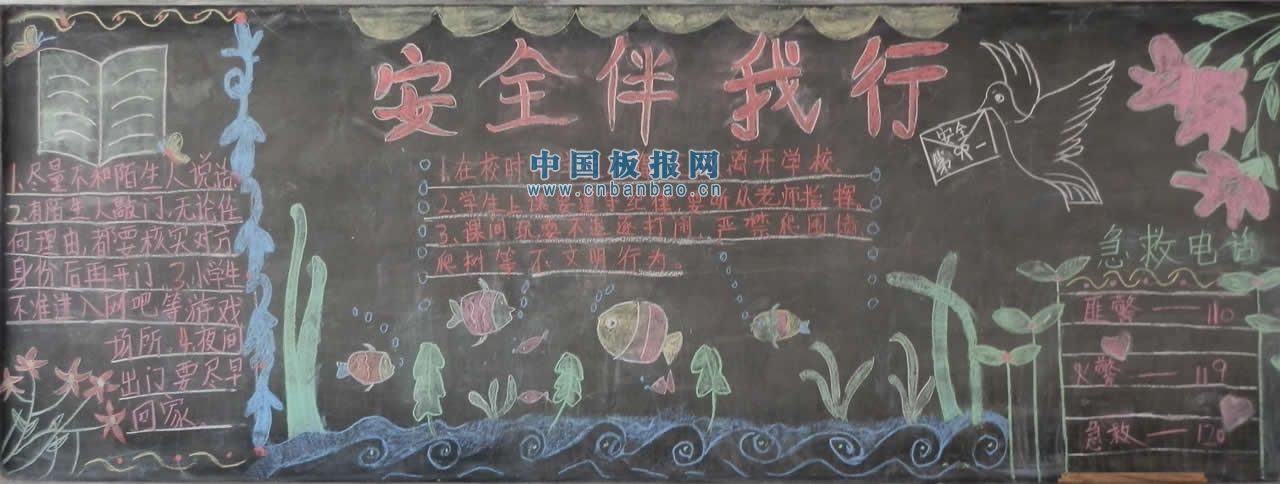 安全伴我行
安全
第一
1.尽量不和陌生人说话.
2.有陌生人敲门,无论任
何理由,都要核实对方
身份后再开门.3.小学生
不准进入网吧等游戏
场所.4.夜间
出门要尽早
回家。
1.在校时 离开学校.
中国板报网
www.cnbanbao.cn
2.学生上课要遵守纪律,要听从老师指挥.
3.课间玩耍不追逐打闹,严禁爬围墙
爬树等不文明行为。
急救电话
匪警—110
火警—119
急救—120